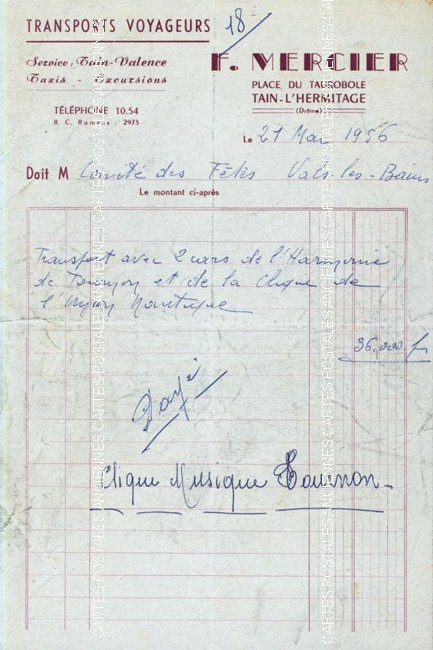 TRANSPORTS VOYAGEURS
18
Service : Tain-Valence
Taxis - Excursions
TÉLÉPHONE 10.54
R. C. Romans : 2975
F. MERCIER
PLACE DU TAUROBOLE
TAIN-L'HERMITAGE
(Drôme)
Le 21 Mai 1956
Doit M Comité des Fêtes Vals-les-Bains
Le montant ci-après
Transport avec 2 cars de l'Harmonie
de Tournon et de la Clique de
l'Union Nautique
36,000 frs
Payé
Clique Musique Tournon
CARTES POSTALES ANCIENNES